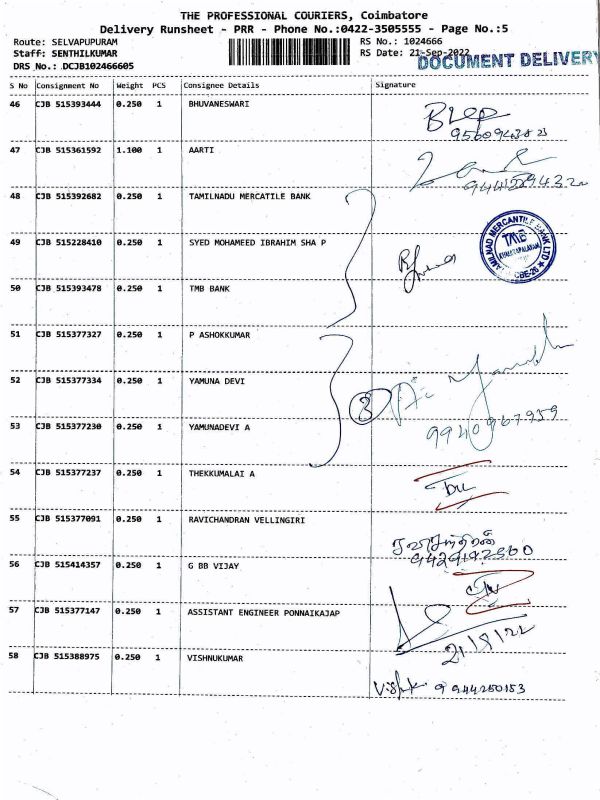 THE PROFESSIONAL COURIERS, Coimbatore
Delivery Runsheet - PRR - Phone No.:0422-3505555 - Page No.:5
Route: SELVAPUPURAM RS No.: 1024666
Staff: SENTHILKUMAR RS Date: 21-Sep-2022
DRS No.: DCJB102466605 DOCUMENT DELIVERY
S No Consignment No Weight PCS Consignee Details Signature
46 CJB 515393444 0.250 1 BHUVANESWARI
47 CJB 515361592 1.100 1 AARTI
48 CJB 515392682 0.250 1 TAMILNADU MERCATILE BANK
49 CJB 515228410 0.250 1 SYED MOHAMEED IBRAHIM SHA P
TAMILNAD MERCANTILE BANK LTD
TMB
CBE-26
50 CJB 515393478 0.250 1 TMB BANK
51 CJB 515377327 0.250 1 P ASHOKKUMAR
52 CJB 515377334 0.250 1 YAMUNA DEVI
3
53 CJB 515377230 0.250 1 YAMUNADEVI A
9940967959
54 CJB 515377237 0.250 1 THEKKUMALAI A
55 CJB 515377091 0.250 1 RAVICHANDRAN VELLINGIRI
ரவிசந்திரன்
56 CJB 515414357 0.250 1 G BB VIJAY
57 CJB 515377147 0.250 1 ASSISTANT ENGINEER PONNAIKAJAP
21/9/22
58 CJB 515388975 0.250 1 VISHNUKUMAR
9944250153